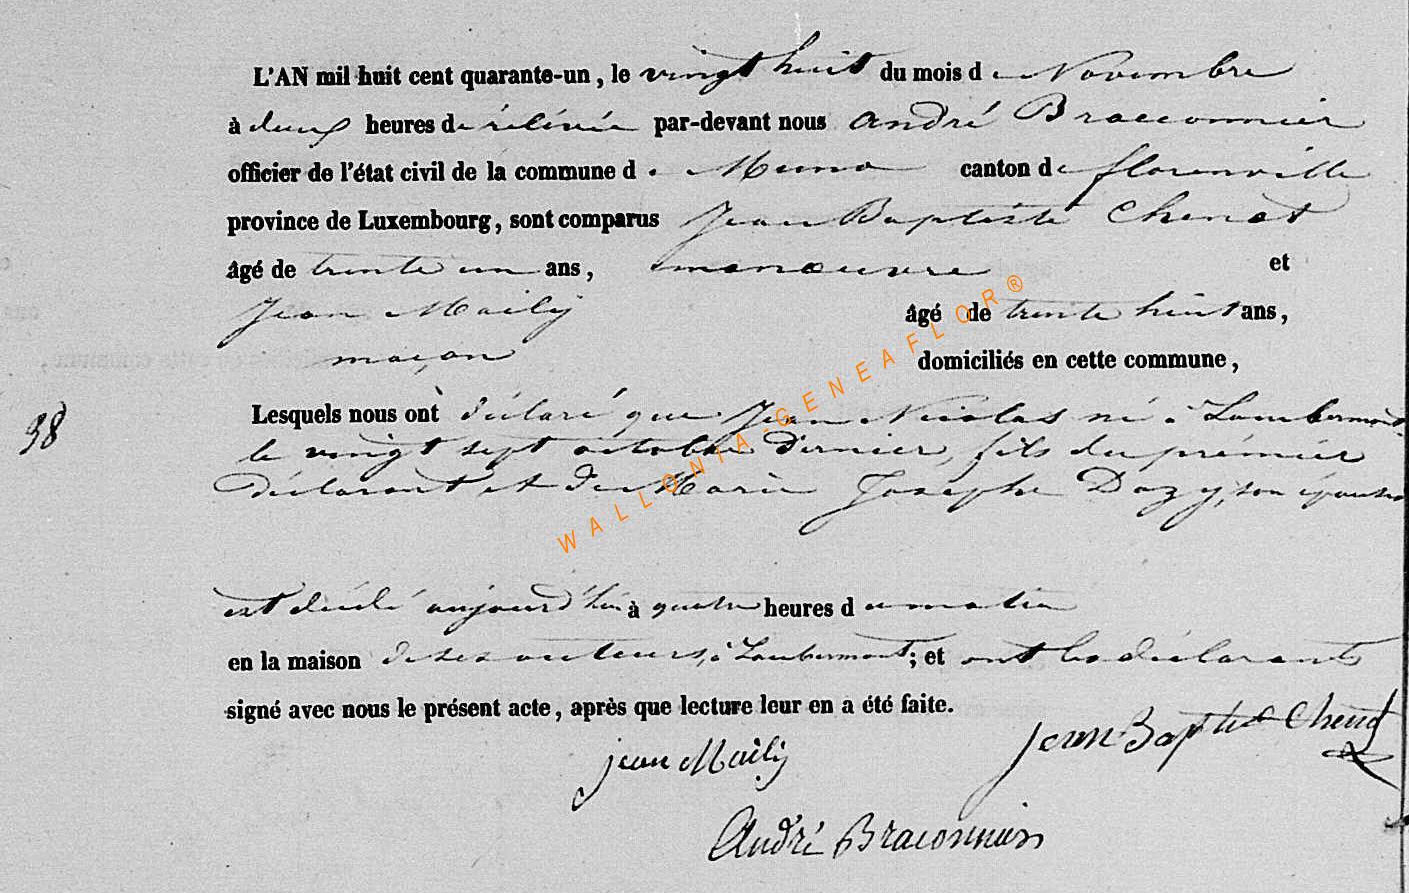 L'AN mil huit cent quarante-un, le vingt huit du mois de Novembre
à deux heures de rélévée par-devant nous André Braconnier
officier de l'état civil de la commune de Muno canton de florenville
province de Luxembourg, sont comparus Jean Baptiste Chenot
âgé de trente un ans, manœuvre et
Jean Maily âgé de trente huit ans,
maçon domiciliés en cette commune,
38
Lesquels nous ont déclaré que Jean Nicolas né à Lambermont
le vingt sept octobre dernier, fils du prémiér
déclarant et de Marie Josephe Dozy, son épouse
est décédé aujourd'hui à quatre heures du matin
en la maison de ses auteurs, à Lambermont; et ont les déclarants
signé avec nous le présent acte, après que lecture leur en a été faite.
jean Maily Jean Baptiste Chenot
André Braconnier
WALLONIA-GENEAFLOR®